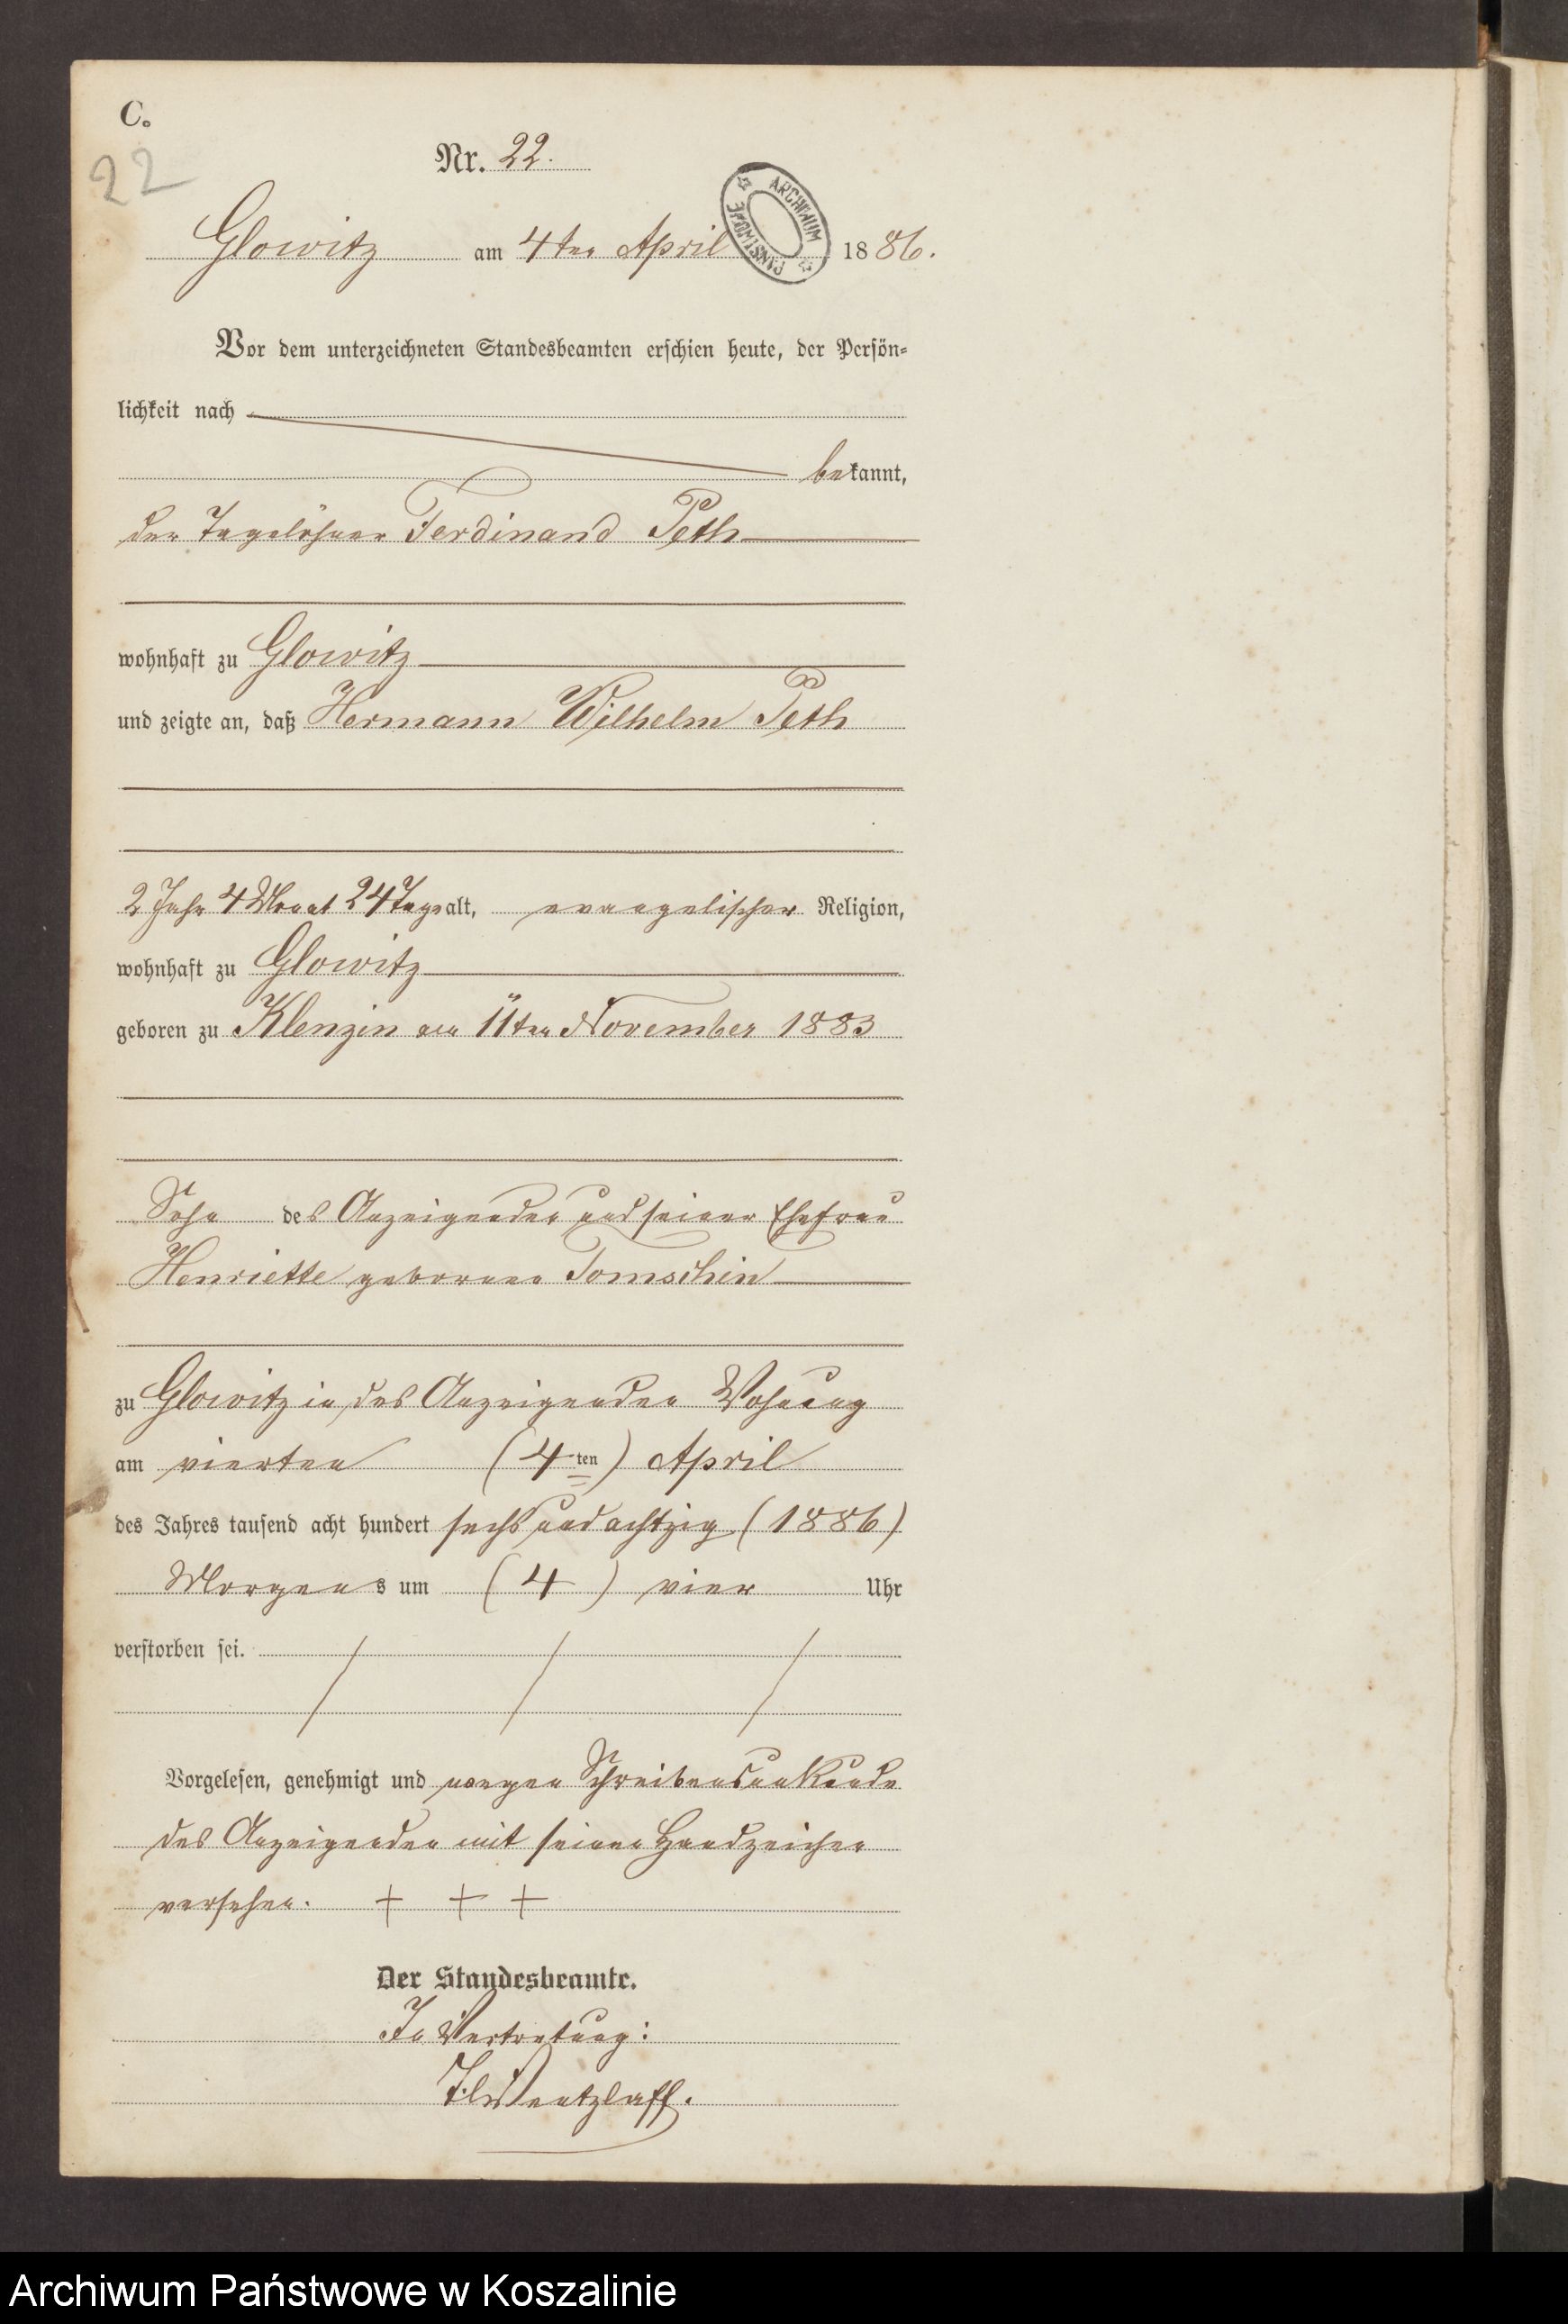 C.
22
Nr. 22.
ARCHIWUM PAŃSTWOWE
Glowitz am 4ten April 1886.
Vor dem unterzeichneten Standesbeamten erschien heute, der Persön-
lichkeit nach
bekannt,
der Tagelöhner Ferdinand Peth
wohnhaft zu Glowitz
und zeigte an, daß Hermann Wilhelm Peth
2 Jahr 4 Monat 24 Tage alt, evangelischer Religion,
wohnhaft zu Glowitz
geboren zu Klenzin am 11ten November 1883
Sohn des Anzeigenden und seiner Ehefrau
Henriette geborenen Tomschin
zu Glowitz in des Anzeigenden Wohnung
am vierten (4ten) April
des Jahres tausend acht hundert sechs und achtzig (1886)
Morgens um (4) vier Uhr
verstorben sei.
Vorgelesen, genehmigt und wegen Schreibensunkunde
des Anzeigenden mit seinen Handzeichen
versehen. + + +
Der Standesbeamte.
In Vertretung:
Wentzlaff.
Archiwum Państwowe w Koszalinie